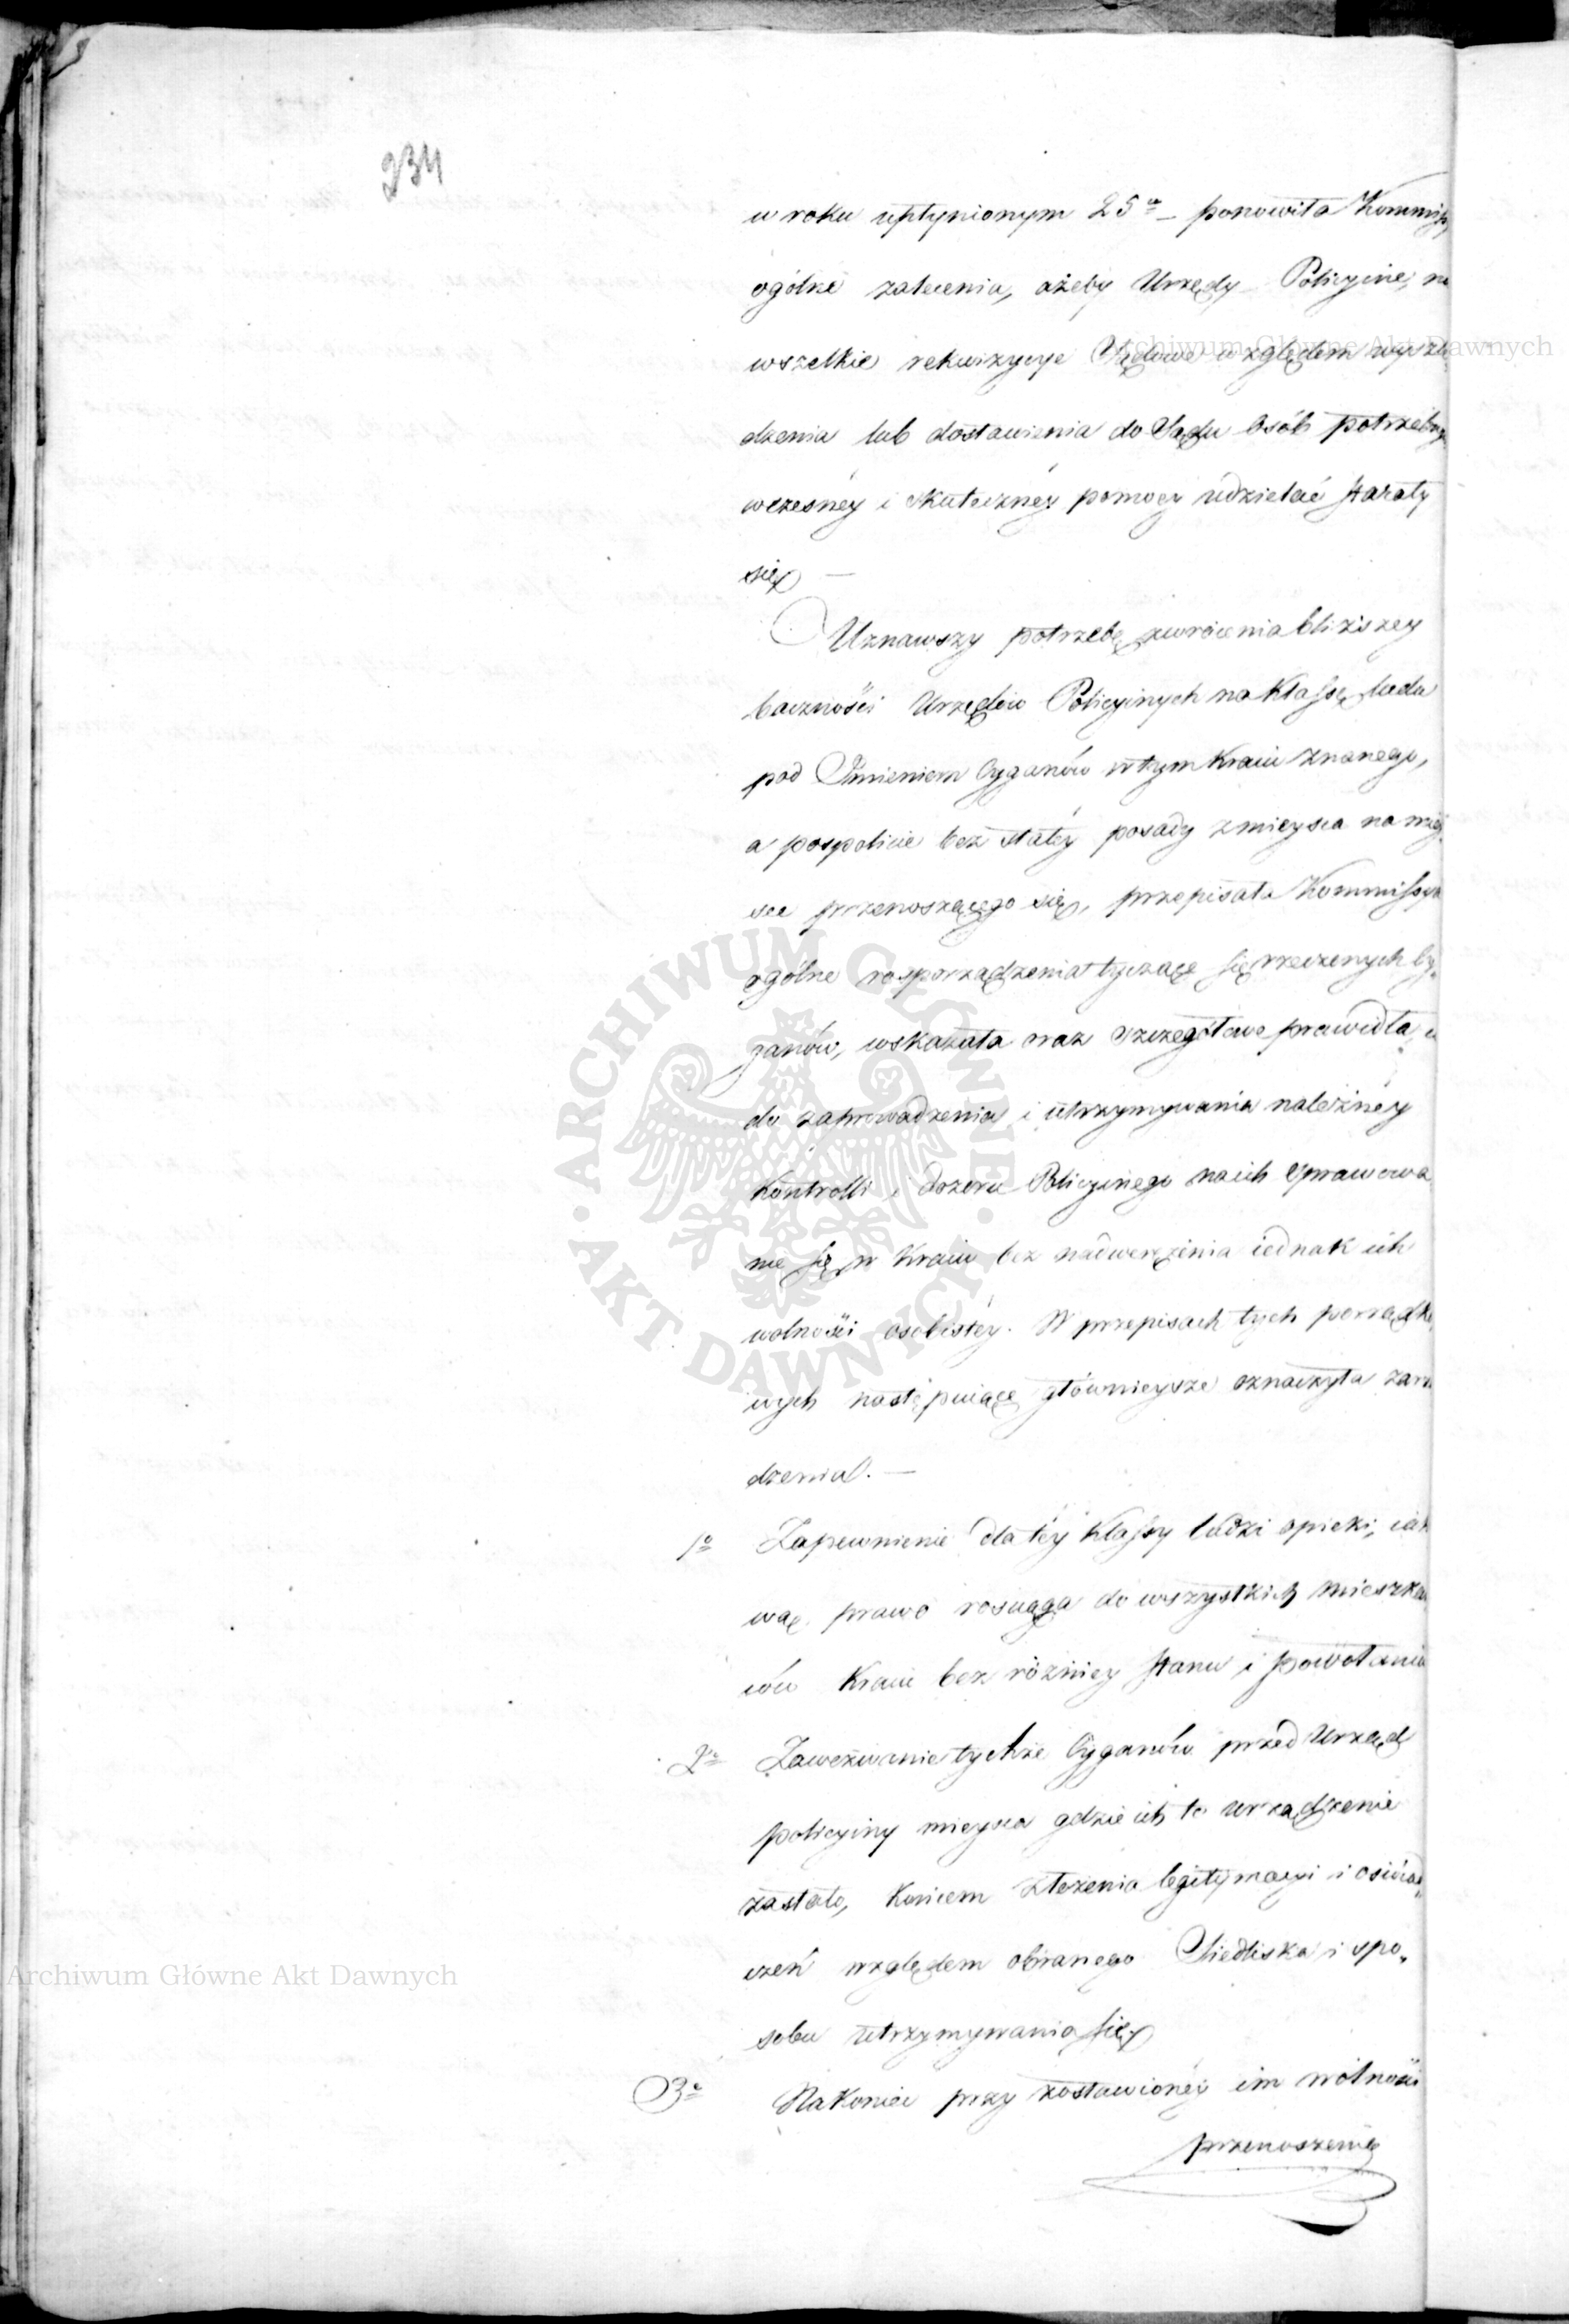 234
w roku upłynionym 25ᵃ – ponowiła Kommiſ
ogólne zalecenia, ażeby Urzędy Policyine, na
wszelkie rekwizycye Sądowe względem wyśle
dzenia lub dostawienia do Sądu Osób potrzebny
wczesnéy i skutecznéy pomocy udzielać ſtarały
się —
Uznawszy potrzebę zwrócenia bliższey
baczności Urzędów Policyinych na Klaſsę ludu
pod Imieniem Cyganów w tym Kraiu znanego,
a pospolicie bez stałéy posady z mieysca na miey
sce przenoszącego się, przepisała Kommiſsya
ogólne rosporządzenia tyczące ſię rzeczonych Cy„
ganów, wskazała oraz szczegółowe prawidła,
do zaprowadzenia i utrzymywania należnéy
Kontrolli i dozoru Policyinego na ich sprawowa
nie ſię w Kraiu bez nadwerężenia iednak ich
wolności osobistéy. W przepisach tych porządko
wych następuiące głównieysze oznaczyła zarzą
dzenia. —
1º Zapewnienie dla téy Klaſsy ludzi opieki, iak
wą prawo rosciąga do wszystkich mieszkań
ców Kraiu bez różnicy ſtanu i powołania
2º Zawezwanie tychże Cyganów przed Urząd
policyiny mieysca gdzie ich to urządzenie
zastało, Koncem złożenia legitymacyi i oświad„
czeń względem obranego Siedliska i spo„
sobu utrzymywania ſię
3º Nakoniec przy zostawionéy im wolności
przenoszenia
Archiwum Główne Akt Dawnych
Archiwum Główne Akt Dawnych
ARCHIWUM GŁÓWNE · AKT DAWNYCH ·